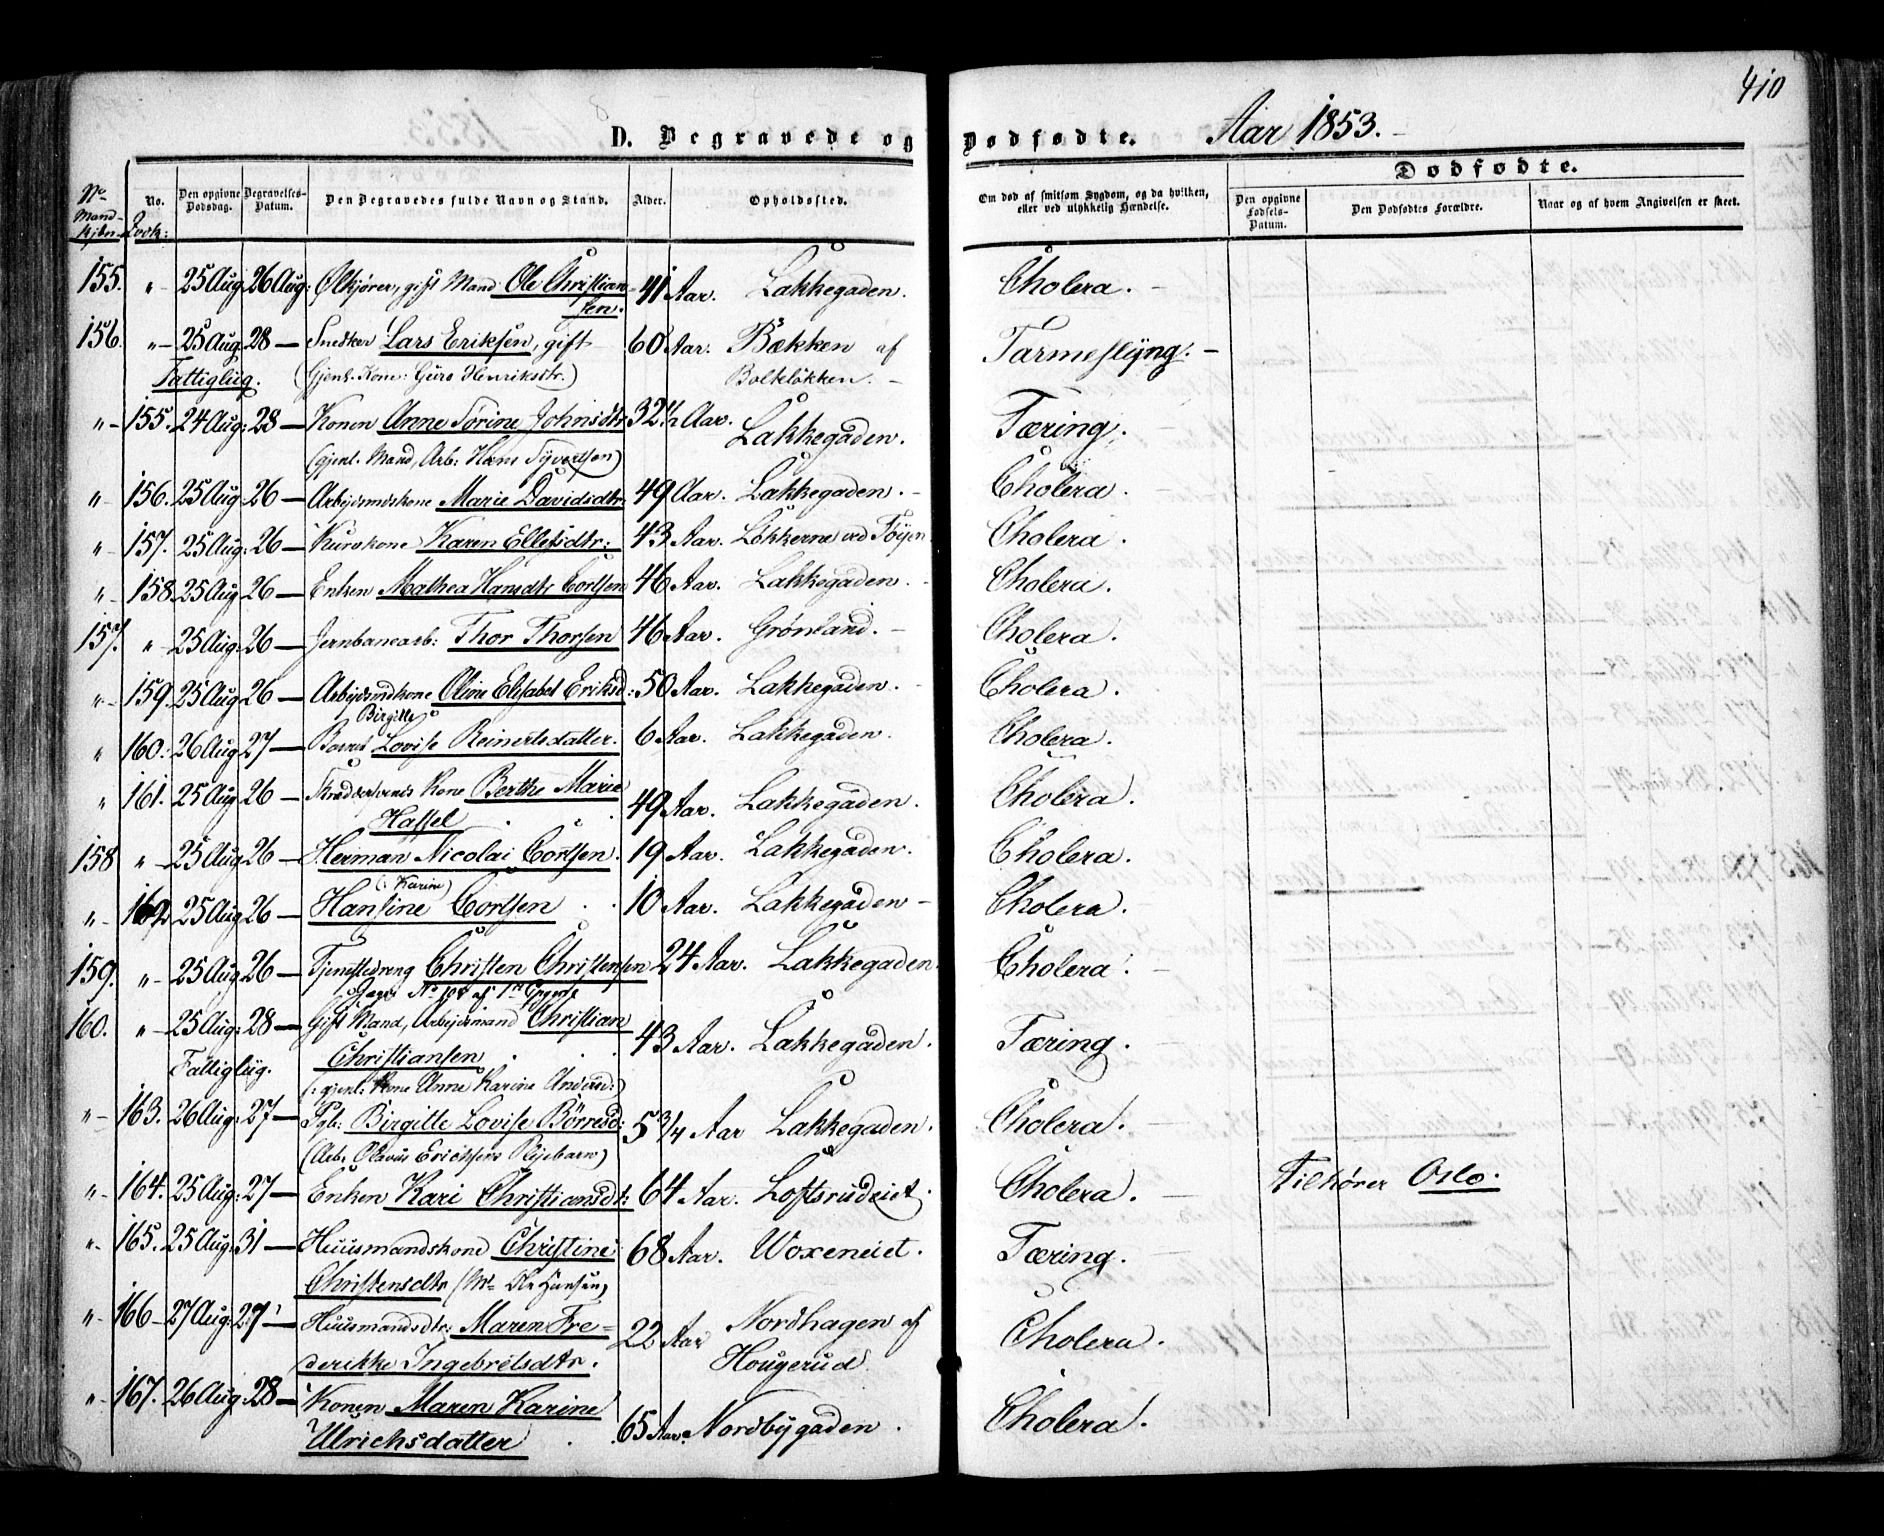 410
D. Begravede og Dødfødte. Aar 1853.
Dødfødte.
No Mandkjön
No. Qvok:
Den opgivne Dødsdag.
Begravelses-Datum.
Den Begravedes fulde Navn og Stand.
Alder.
Opholdssted.
Om død af smitsom Sygdom, og da hvilken, eller ved ulykkelig Hændelse.
Den opgivne Fødsels-Datum.
Den Dødfødtes Forældre.
Naar og af hvem Angivelsen er skeet.
155. " 25 Aug 26 Aug: Ølkjører, gift Mand Ole Christian- 41 Aar. Lakkegaden. Cholera. -
sen.
156. "- 25 Aug 28 - Snedker Lars Eriksen, gift 60 Aar. Bækken af Tarmeslyng. -
Fattiglug. (Gjenl. Kone: Guro Henriksdtr.) Bolteløkken. -
"- 155. 24 Aug: 28 - Konen Anne Sørine Johnsdtr 32 1/2 Aar. Lakkegaden. Tæring.
(gjenl. Mand, Arb: Hans Syvertsen)
"- 156. 25 Aug: 26 - Arbejdsmdskone Marie Davidsdtr. 49 Aar. Lakkegaden. - Cholera.
"- 157. 25 Aug: 26 - Kurskone Karen Ellefsdtr: 43 Aar. Løkkerne ved Tøyen Cholera.
"- 158. 25 Aug 26 - Enken Mathea Hansdtr Cortsen 46 Aar. Lakkegaden. Cholera.
157. " 25 Aug: 26 - Jernbanearb: Thor Thorsen 46 Aar. Grønland. - Cholera.
"- 159. 25 Aug 26 - Arbejdsmdkone Oline Elisabet Eriksd: 50 Aar. Lakkegaden. Cholera.
Birgitte
" 160. 26 Aug 27 - Barnet Lovise Reinertsdatter. 6 Aar. Lakkegaden. Cholera.
" 161. 25 Aug 26 - Skrædersvends Kone Berthe Marie 49 Aar. Lakkegaden. Cholera.
Hassel
158 "- 25 Aug 26 - Herman Nicolai Cortsen. 19 Aar. Lakkegaden. Cholera.
(: Karine)
"- 162 25 Aug 26 - Hansine Cortsen 10 Aar. Lakkegaden - Cholera.
159. "- 25 Aug 26 - Tjenestedreng Christen Christensen 24 Aar. Lakkegaden. Cholera.
Jæger No 108 af 1ste
160. "- 25 Aug: 28 - Gift Mand, Arbejdsmand Christian 43 Aar. Lakkegaden. Tæring.
Fattiglug. Christiansen
(: gjenl: Kone Anne Karine Andersd:)
"- 163. 26 Aug: 27 - Pgb: Birgitte Lovise Børresd: 5 3/4 Aar Lakkegaden. Cholera.
(Arb: Olavus Ericksens Plejebarn)
"- 164. 25 Aug: 27 - Enken Kari Christiansdt: 64 Aar. Loftsrudeiet. Cholera. Tilhører Oslo.
"- 165. 25 Aug: 31 - Huusmandskone Christine 68 Aar. Woxeneiet. Tæring.
Christensdtr (Md Ole Hansen)
"- 166 - 27 Aug: 27 Huusmandsdtr: Maren Fre- 22 Aar Nordhagen af Cholera.
derikke Ingebretsdtr. Hougerud
"- 167. 26 Aug 28 - Konen Maren Karine 65 Aar. Nordbygaden. Cholera.
Ulrichsdatter